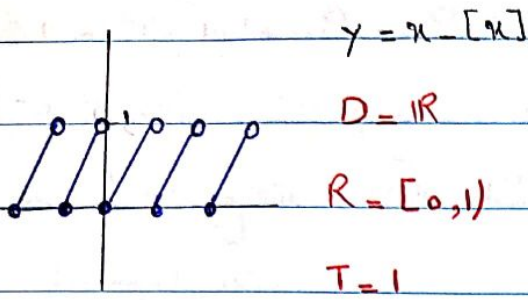 y = x - [x]
1
D = ℝ
R = [0,1)
T = 1